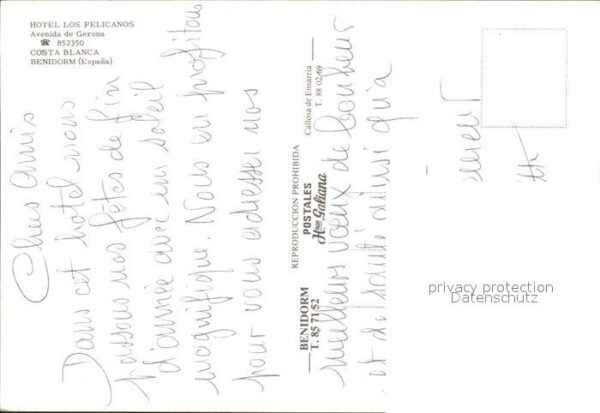 HOTEL LOS PELICANOS
Avenida de Gerona
☎ 852350
COSTA BLANCA
BENIDORM (España)
Chers Amis
Dans cet hotel nous
passons nos fêtes de fin
d'année avec un soleil
magnifique. Nous en profitons
pour vous adresser nos
meilleurs voeux de bonheur
et de santé ainsi qu'a
BENIDORM
T. 85 71 52
REPRODUCCION PROHIBIDA
POSTALES
Hnos Galiana
Callosa de Ensarria
T. 88 02 69
privacy protection
Datenschutz